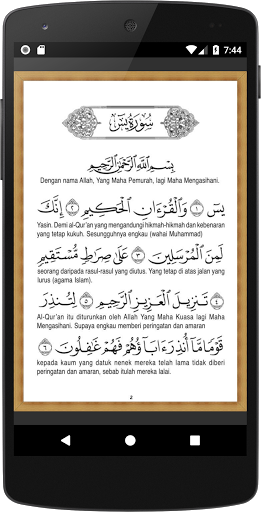 7:44
سورة يس
بِسْمِ اللَّهِ الرَّحْمَٰنِ الرَّحِيمِ
Dengan nama Allah, Yang Maha Pemurah, lagi Maha Mengasihani.
يسٓ ﴿١﴾ وَالْقُرْءَانِ الْحَكِيمِ ﴿٢﴾ إِنَّكَ
Yasin. Demi al-Qur'an yang mengandungi hikmah-hikmah dan kebenaran
yang tetap kukuh. Sesungguhnya engkau (wahai Muhammad)
لَمِنَ الْمُرْسَلِينَ ﴿٣﴾ عَلَىٰ صِرَاطٍ مُّسْتَقِيمٍ
seorang daripada rasul-rasul yang diutus. Yang tetap di atas jalan yang
lurus (agama Islam).
﴿٤﴾ تَنزِيلَ الْعَزِيزِ الرَّحِيمِ ﴿٥﴾ لِتُنذِرَ
Al-Qur'an itu diturunkan oleh Allah Yang Maha Kuasa lagi Maha
Mengasihani. Supaya engkau memberi peringatan dan amaran
قَوْمًا مَّا أُنذِرَ ءَابَاؤُهُمْ فَهُمْ غَافِلُونَ ﴿٦﴾
kepada kaum yang datuk nenek mereka telah lama tidak diberi
peringatan dan amaran, sebab itulah mereka lalai.
2